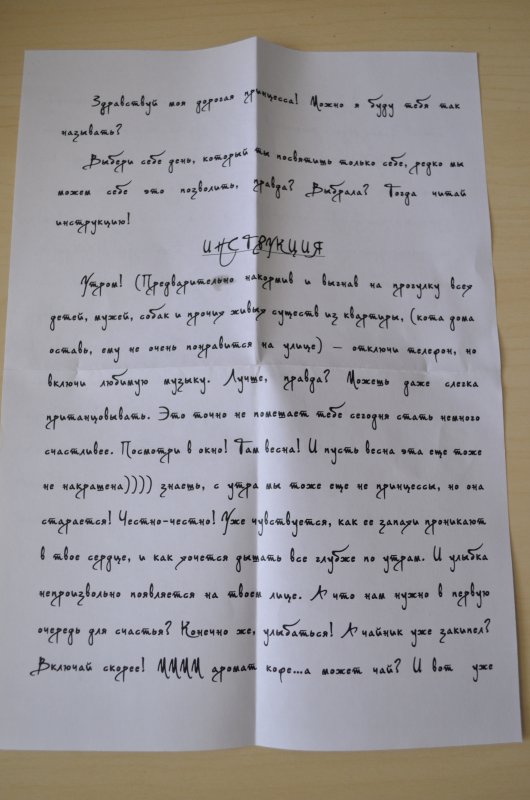 Здравствуй моя дорогая принцесса! Можно я буду тебя так
называть?
Выбери себе день, который ты посвятишь только себе, редко мы
можем себе это позволить, правда? Выбрала? Тогда читай
инструкцию!
ИНСТРУКЦИЯ
Утром! (Предварительно накормив и выгнав на прогулку всех
детей, мужей, собак и прочих живых существ из квартиры, (кота дома
оставь, ему не очень понравится на улице) – отключи телефон, но
включи любимую музыку. Лучше, правда? Можешь даже слегка
пританцовывать. Это точно не помешает тебе сегодня стать немного
счастливее. Посмотри в окно! Там весна! И пусть весна эта еще тоже
не накрашена)))) знаешь, с утра мы тоже еще не принцессы, но она
старается! Честно-честно! Уже чувствуется, как ее запахи проникают
в твое сердце, и как хочется дышать все глубже по утрам. И улыбка
непроизвольно появляется на твоем лице. А что нам нужно в первую
очередь для счастья? Конечно же, улыбаться! А чайник уже закипел?
Включай скорее! МММММ аромат кофе...а может чай? И вот уже